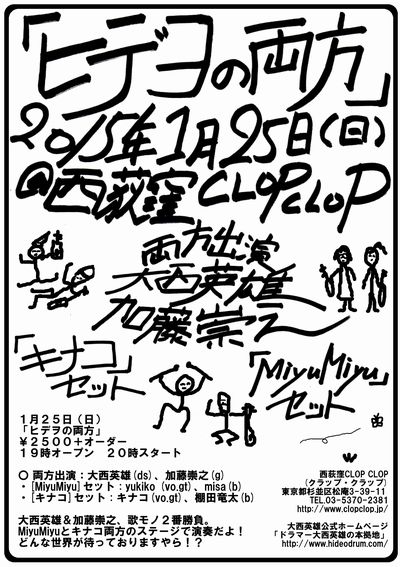 「ヒデヨの両方」
2015年1月25日(日)
@西荻窪CLOPCLOP
両方出演
大西英雄
加藤崇之
「キナコ」
セット
「MiyuMiyu」
セット
1月25日(日)
「ヒデヲの両方」
¥2500+オーダー
19時オープン 20時スタート
○ 両方出演:大西英雄(ds)、加藤崇之(g)
・[MiyuMiyu]セット:yukiko(vo.gt)、misa(b)
・[キナコ]セット:キナコ(vo.gt)、棚田竜太(b)
大西英雄&加藤崇之、歌モノ2番勝負。
MiyuMiyuとキナコ両方のステージで演奏だよ!
どんな世界が待っておりますやら!?
西荻窪CLOP CLOP
(クラップ・クラップ)
東京都杉並区松庵3-39-11
TEL.03-5370-2381
http://www.clopclop.jp/
大西英雄公式ホームページ
「ドラマー大西英雄の本拠地」
http://www.hideodrum.com/